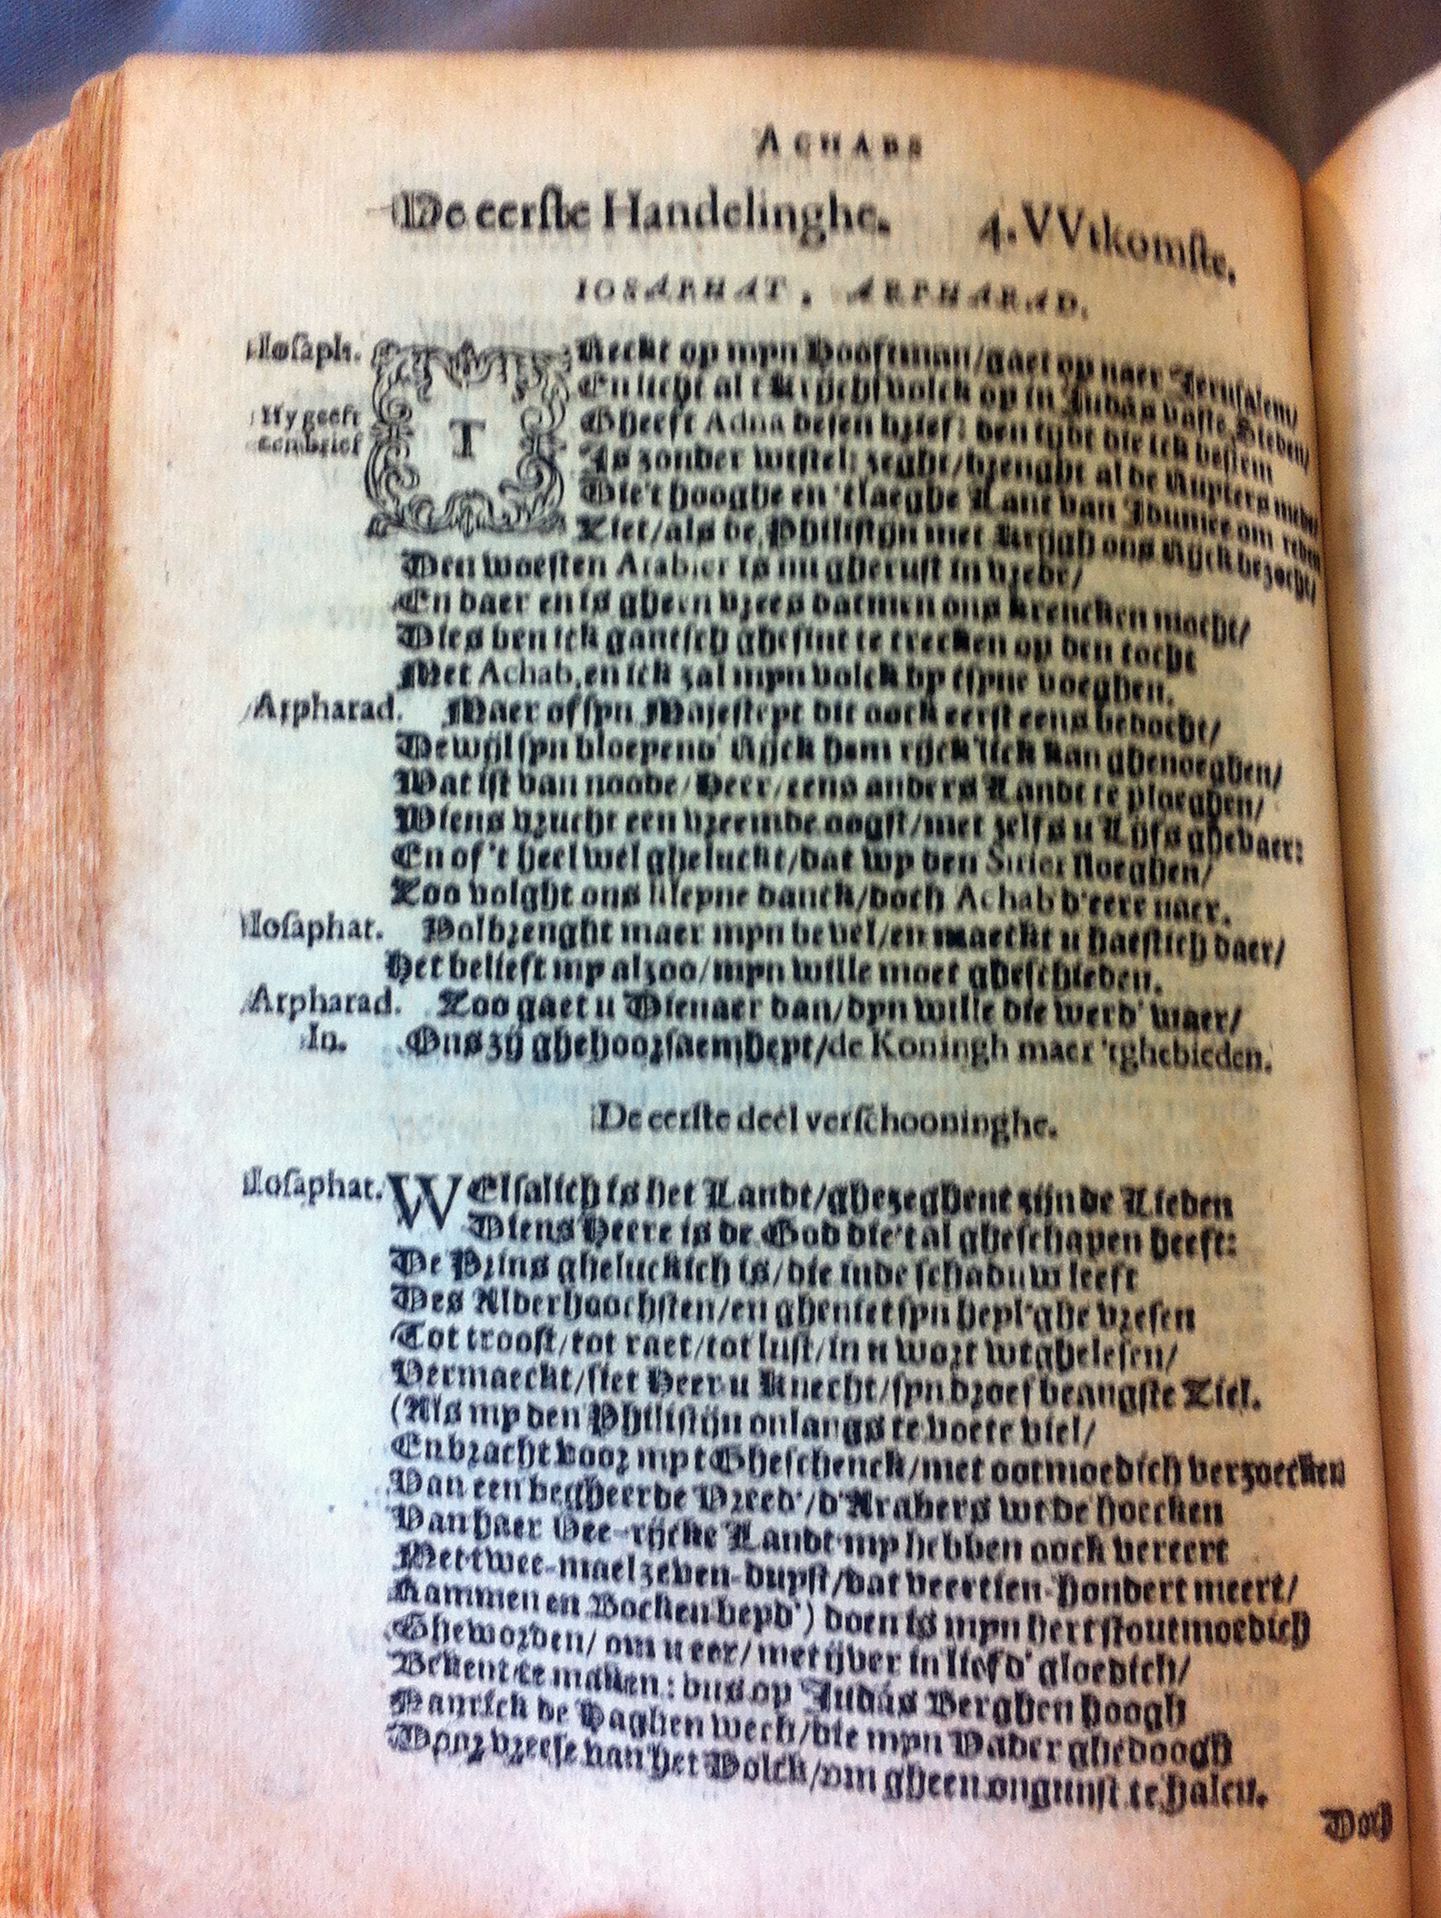 ACHABS
De eerste Handelinghe. 4. VVtkomste.
IOSAPHAT, ARPHARAD.
Iosaph. TReckt op myn Hooftman/gaet op naer Jerusalem/
En licht al 't Krijchsvolck op in Judás vaste Steden/
Hy geeft Gheeft Adna desen brief: den tijdt die ick bestem
een brief Is zonder wissel: zeght/brenght al de Ruyters mede
Die 't hooghe en 't laeghe Lant van Idumee om reden
Ziet/als de Philistijn met Krijgh ons Rijck bezocht/
Den woesten Arabier is nu gherust in vrede/
En daer en is gheen vrees datmen ons krencken mocht/
Dies ben ick gantsch ghesint te trecken op den tocht
Met Achab, en ick zal myn volck by tsyne voeghen.
Arpharad. Maer of syn Majesteyt dit oock eerst eens bedocht/
Dewijl syn bloeyend' Rijck hem rijck'lick kan ghenoeghen/
Wat ist van noode/Heer/eens anders Landt te ploeghen/
Wiens vrucht een vreemde oogst/met zelfs u Lijfs ghevaer:
En of 't heel wel gheluckt/dat wy den Sirier sloeghen/
Zoo volght ons kleyne danck/doch Achab d'eere naer.
Iosaphat. Volbrenght maer myn bevel/en maeckt u haestich daer/
Het belieft my alzoo/myn wille moet gheschieden.
Arpharad. Zoo gaet u Dienaer dan/dyn wille die werd' waer/
In. Ons zy ghehoorsaemheyt/de Koningh maer 't ghebieden.
De eerste deel verschooninghe.
Iosaphat. WElsalich is het Landt/ghezeghent zijn de Lieden
Diens Heere is de God die 't al gheschapen heeft:
De Prins gheluckich is/die inde schaduw leeft
Des Alderhoochsten/en gheniet syn heyl'ghe vresen
Tot troost/tot raet/tot lust/in u wort wtghelesen/
Vermaeckt/siet Heer u Knecht/syn droef beangste Ziel.
(Als my den Philistijn onlangs te voete viel/
En bracht voor my t Gheschenck/met ootmoedich verzoecken
Van een begheerde Vreed'/d'Arabers wt de hoecken
Van haer Vee-rijcke Landt my hebben oock vereert
Met twee-mael zeven-duyst/dat veertien-hondert meert/
Rammen en Bocken beyd') doen is myn hert stoutmoedich
Gheworden/ om u eer/ met ijver in liefd' gloedich/
Bekent te maken: dus op Judás Berghen hoogh
Nam ick de Haghen wech/die myn Vader ghedoogh
Door vreese van het Volck/om gheen ongunst te halen.
Doch